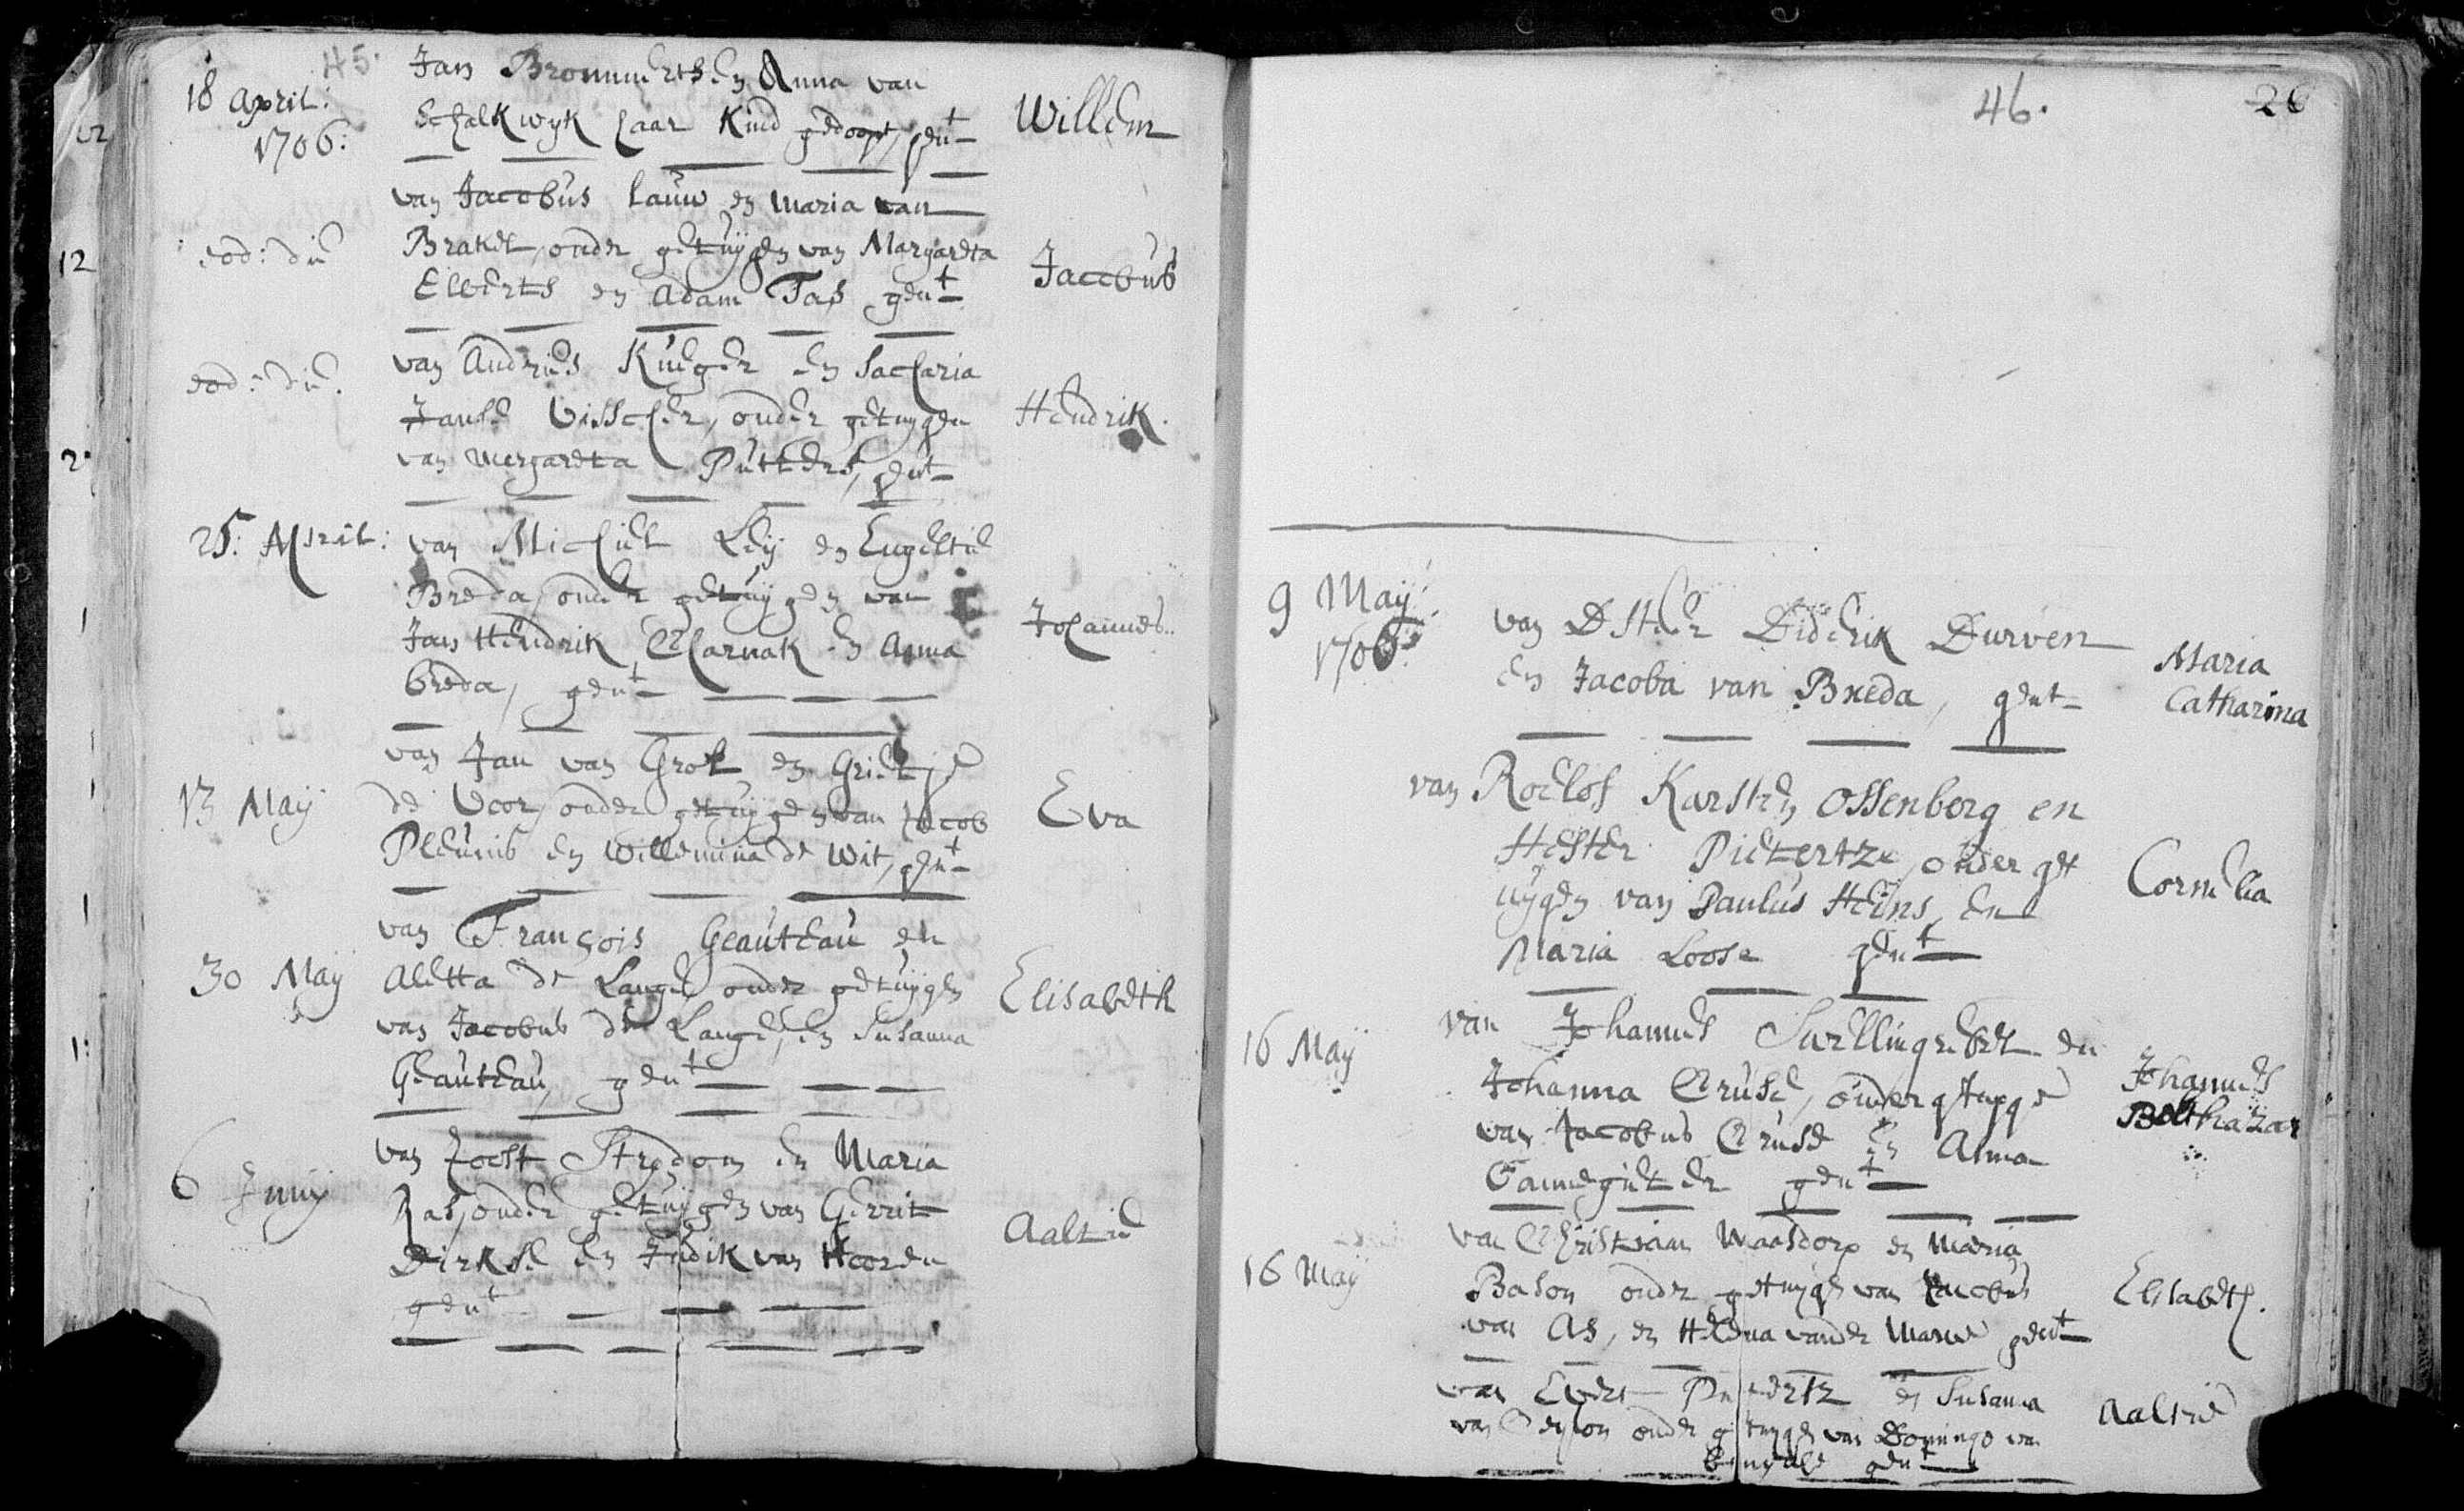 45.
18 April: 1706:
Jan Brommerts en Anna van
Schalkwyk haar Kind gedoopt, gent
Willem
van Jacobus Lauw en Maria van
eod: die
Brakel, onder getuijgen van Margareta
Elberts en Adam Tas gent
Jacobus
van Andries Kuiger en Sacharia
eod: die
Janse Visscher, onder getuygen
van Mergareta Putters, gent
Hendrik.
25: April:
van Michiel Leij en Engeltie
Breda, onder getuijgen van
Jan Hendrik Charnak en Anna
breda, gent
Johannes.
van Jan van Grol en Grietje
13 Maij
de Voor, onder getuijgen van Jacob
Pleunis en Willemina de Wit, gent
Eva
van François Geauteau en
30 Maij
Aletta de Lange onder getuijgen
van Jacobus de Lange, en Susanna
Geauteau, gent
Elisabeth
van Joost Strydom en Maria
6 Junij
Ras, onder getuijgen van Gerrit
Dirkse en Judik van Hooren
gent
Aaltie
12
2
1
46.
26
9 Maij: 1706:
van D Heer Diderik Durven
en Jacoba van Breda, gent
Maria
Catharina
van Roelof Karsten Ossenborg en
Hester Pietertze, onder get
uygen van Paulus Heins, en
Maria Loose gent
Cornelia
16 Maij
van Johannes Swellingrebel en
Johanna Cruse, onder getuyge
van Jacobus Cruse en Anna
gent
Johannes
Balthazar
van Christiaan Maasdorp en Maria
16 Maij
Bason onder getuijge van Jacobus
van As, en Helena vander Marwe gent
Elisabeth.
van Evert en Susanna
van Ceylon onder getuygen van Domingo van
bengale gent
Aaltie